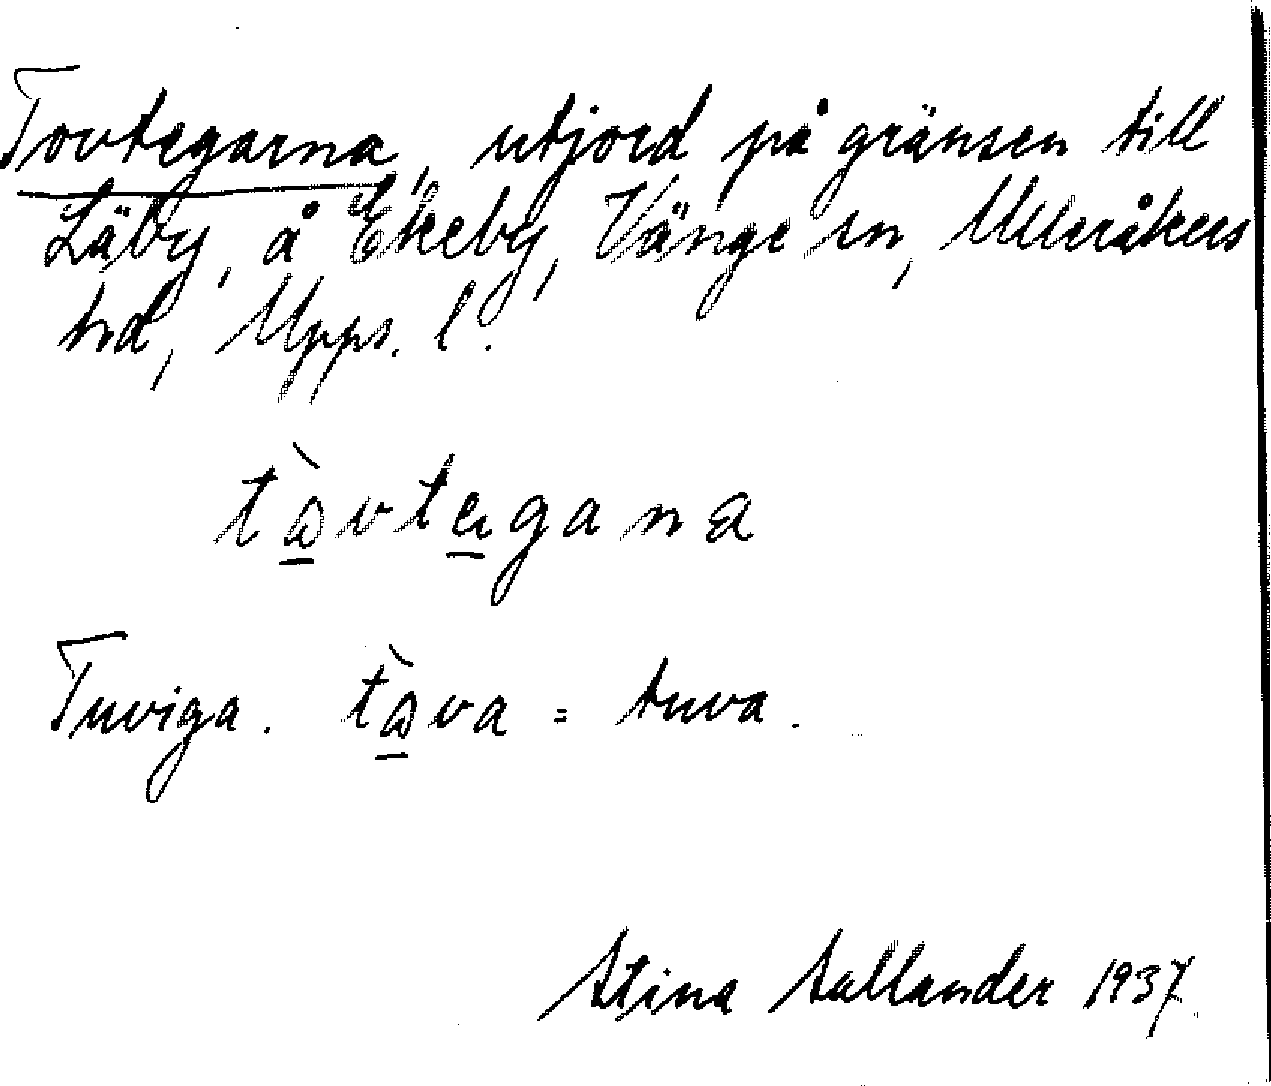 Tovtegarna, utjord på gränsen till
Läby, å Ekeby, Vänge sn, Ulleråkers
hd, Upps. l.
tàvtegana
Tuviga. tàva = tuva.
Stina Sallander 1937.